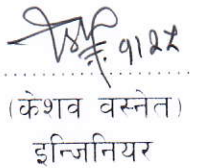 (केशव वस्नेत)
इन्जिनियर